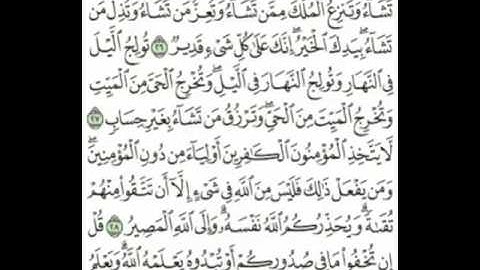 تَشَآءُ وَتَنزِعُ ٱلْمُلْكَ مِمَّن تَشَآءُ وَتُعِزُّ مَن تَشَآءُ وَتُذِلُّ مَن
تَشَآءُۖ بِيَدِكَ ٱلْخَيْرُۖ إِنَّكَ عَلَىٰ كُلِّ شَىْءٍ قَدِيرٌ ٢٦ تُولِجُ ٱلَّيْلَ
فِى ٱلنَّهَارِ وَتُولِجُ ٱلنَّهَارَ فِى ٱلَّيْلِۖ وَتُخْرِجُ ٱلْحَىَّ مِنَ ٱلْمَيِّتِ
وَتُخْرِجُ ٱلْمَيِّتَ مِنَ ٱلْحَىِّۖ وَتَرْزُقُ مَن تَشَآءُ بِغَيْرِ حِسَابٍ ٢٧
لَّا يَتَّخِذِ ٱلْمُؤْمِنُونَ ٱلْكَٰفِرِينَ أَوْلِيَآءَ مِن دُونِ ٱلْمُؤْمِنِينَۖ
وَمَن يَفْعَلْ ذَٰلِكَ فَلَيْسَ مِنَ ٱللَّهِ فِى شَىْءٍ إِلَّآ أَن تَتَّقُوا۟ مِنْهُمْ
تُقَىٰةًۗ وَيُحَذِّرُكُمُ ٱللَّهُ نَفْسَهُۥۗ وَإِلَى ٱللَّهِ ٱلْمَصِيرُ ٢٨ قُلْ
إِن تُخْفُوا۟ مَا فِى صُدُورِكُمْ أَوْ تُبْدُوهُ يَعْلَمْهُ ٱللَّهُۗ وَيَعْلَمُ